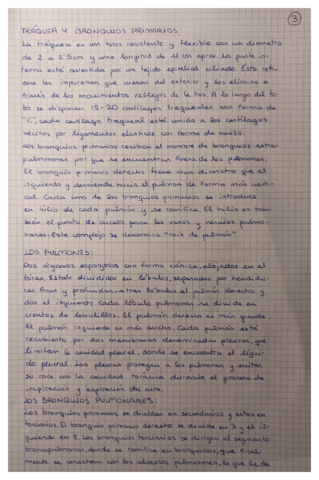 3
TRÁQUEA Y BRONQUIOS PRIMARIOS:
La tráquea es un tubo resistente y flexible con un diámetro
de 2 a 2'5cm y una longitud de 11 cm aprox. La parte in-
terna está revestida por un tejido epitelial ciliado. Este reti-
ene las impurezas que vienen del exterior y las elimina a
través de los movimientos reflejos de la tos. A lo largo del tu-
bo se disponen 15-20 cartílagos traqueales con forma de
"C", cada cartílago traqueal está unido a los cartílagos
vecinos por ligamentos elásticos con forma de anillo.
Los bronquios primarios reciben el nombre de bronquios extra-
pulmonares por que se encuentran fuera de los pulmones.
El bronquio primario derecho tiene mas diámetro que el
izquierdo y desciende hacia el pulmón de forma más verti-
cal. Cada uno de los bronquios primarios se introduce
en hilio de cada pulmón y se ramifica. El hilio es tam-
bién el punto de acceso para los vasos y nervios pulmo-
nares. Este complejo se denomina "raíz de pulmón".
LOS PULMONES:
Dos órganos esponjosos con forma cónica, alojados en el
tórax. Están divididos en lóbulos, separados por hendidu-
ras finas y profundas → tres lóbulos el pulmón derecho y
dos el izquierdo. Cada lóbulo pulmonar se divide en
cientos de lobulillos. El pulmón derecho es más grande.
El pulmón izquierdo es más ancho. Cada pulmón está
recubierto por dos membranas denominadas pleuras, que
limitan la cavidad pleural, donde se encuentra el líqui-
do pleural. Las pleuras protegen a los pulmones y evitan
su roce con la cavidad torácica durante el proceso de
inspiración y espiración del aire.
LOS BRONQUIOS PULMONARES:
Los bronquios primarios se dividen en secundarios y estos en
terciarios. El bronquio primario derecho se divide en 3 y el iz-
quierdo en 2. Los bronquios terciarios se dirigen al segmento
broncopulmonar, donde se ramifica en bronquiolos, que final-
mente se conectan con los alveolos pulmonares, lo que le da